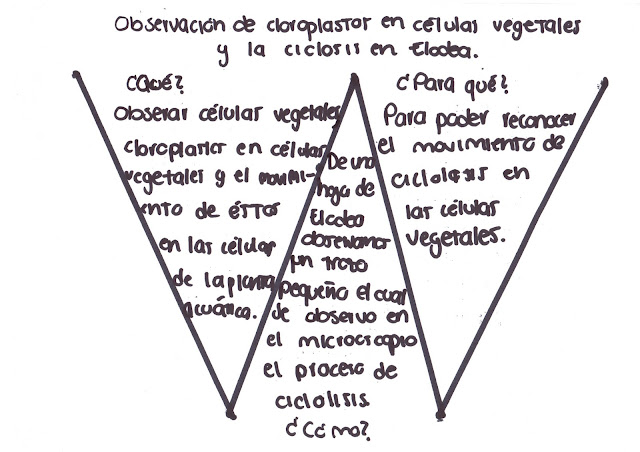 Observación de cloroplastos en células vegetales
y la ciclosis en Elodea.
¿Qué?
Observar células vegetales
cloroplastos en células
vegetales y el movimi-
ento de éstos
en las células
de la planta
acuática.
De una
hoja de
Elodea
observamos
un trozo
pequeño el cual
de observo en
el microscopio
el proceso de
ciclolisis.
¿Cómo?
¿Para qué?
Para poder reconocer
el movimiento de
ciclolisis en
las células
vegetales.